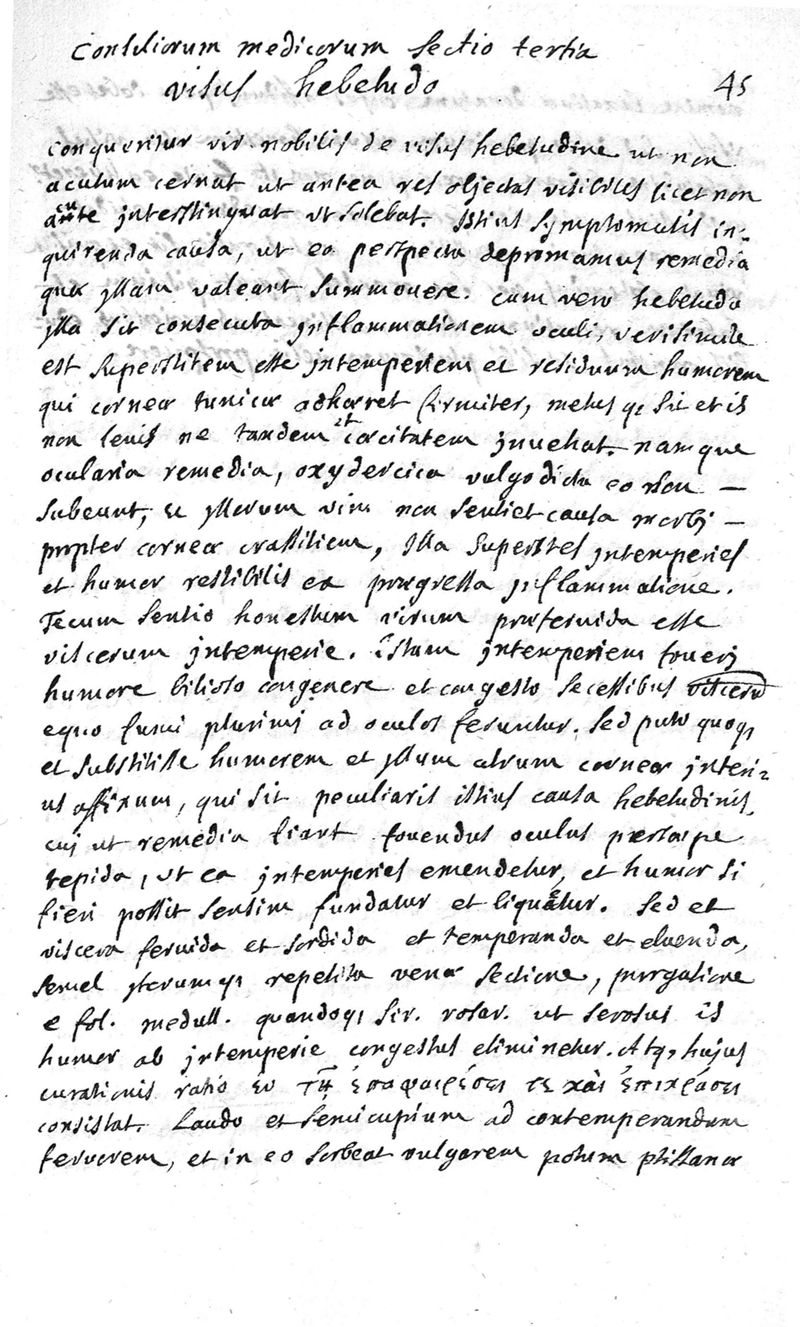 Consiliorum medicorum sectio tertia
visus hebetudo 45
conqueritur vir nobilis de visus hebetudine ut non
acutum cernat ut antea res objectas visibiles licet non
ante interstinguat ut solebat. Istius symptomatis in-
quirenda causa, ut ea perspecta depromamus remedia
quæ jllam valeant summouere. cum vero hebetudo
jlla sit consecuta jnflammationem oculi, verisimile
est superstitem esse jntemperiem et residuum humorem
qui corneæ tunicæ adhæret firmiter, metus q; sit et is
non leuis ne tandem et cæcitatem jnuehat. namque
ocularia remedia, oxydercica vulgo dicta eo non –
subeunt, et jllorum vim non sentiet causa morbj –
propter corneæ crassitiem, jlla superstes jntemperies
et humor restibilis ex prægressa jnflammatione.
Tecum sentio honestum virum præferuida esse
viscerum jntemperie. Istam jntemperiem fouerj
humore bilioso congenere et congesto secessibus viscerũ
equo fumi plurimj ad oculos feruntur. sed puto quoq;
et substitisse humorem et jllum atrum corneæ jnteri-
us affixum, qui sit peculiaris istius causa hebetudinis,
cuj ut remedia fiant fouendus oculus præsaepe
tepida, ut ea jntemperies emendetur, et humor si
fieri possit sensim fundatur et liquetur. Sed et
viscera feruida et sordida et temperanda et eluenda,
semel jterumq; repetita venæ sectione, purgatione
e fol. medull. quandoq; sir. rosar. ut serosus is
humor ab jntemperie congestus eliminetur. Atq; hujus
curationis ratio ἐν τῇ ἐπαφαιρέσει τε καὶ ἐπικράσει
consistat. Laudo et semicupium ad contemperandum
feruorem, et in eo sorbeat vulgarem potum ptissanæ